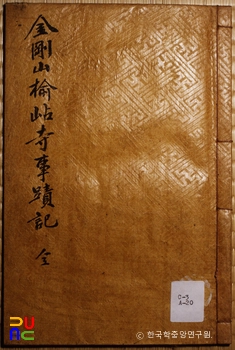 金剛山楡岾寺事蹟記 全
C-3
A-20
© 한국학중앙연구원.